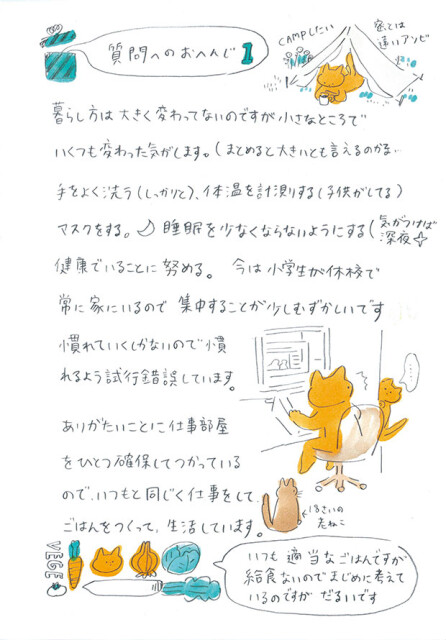 質問へのおへんじ1
CAMPしたい
家では
遠いアソビ
暮らし方は大きく変わってないのですが小さなところで
いくつも変わった気がします。(まとめると大きいとも言えるのかな…
手をよく洗う(しっかりと)、体温を計測りする(子供がしてる)
マスクをする。睡眠を少なくならないようにする(気がつけば深夜
健康でいることに努める。 今は小学生が休校で
常に家にいるので 集中することが少しむずかしいです
慣れていくしかないので慣
れるよう試行錯誤しています。
ありがたいことに仕事部屋
をひとつ確保してつかっている
ので、いつもと同じく仕事をして、
ごはんをつくって、生活しています。
←18さいの
老ねこ
VEGE
いつも 適当なごはんですが
給食ないのでまじめに考えて
いるのですが だるいです